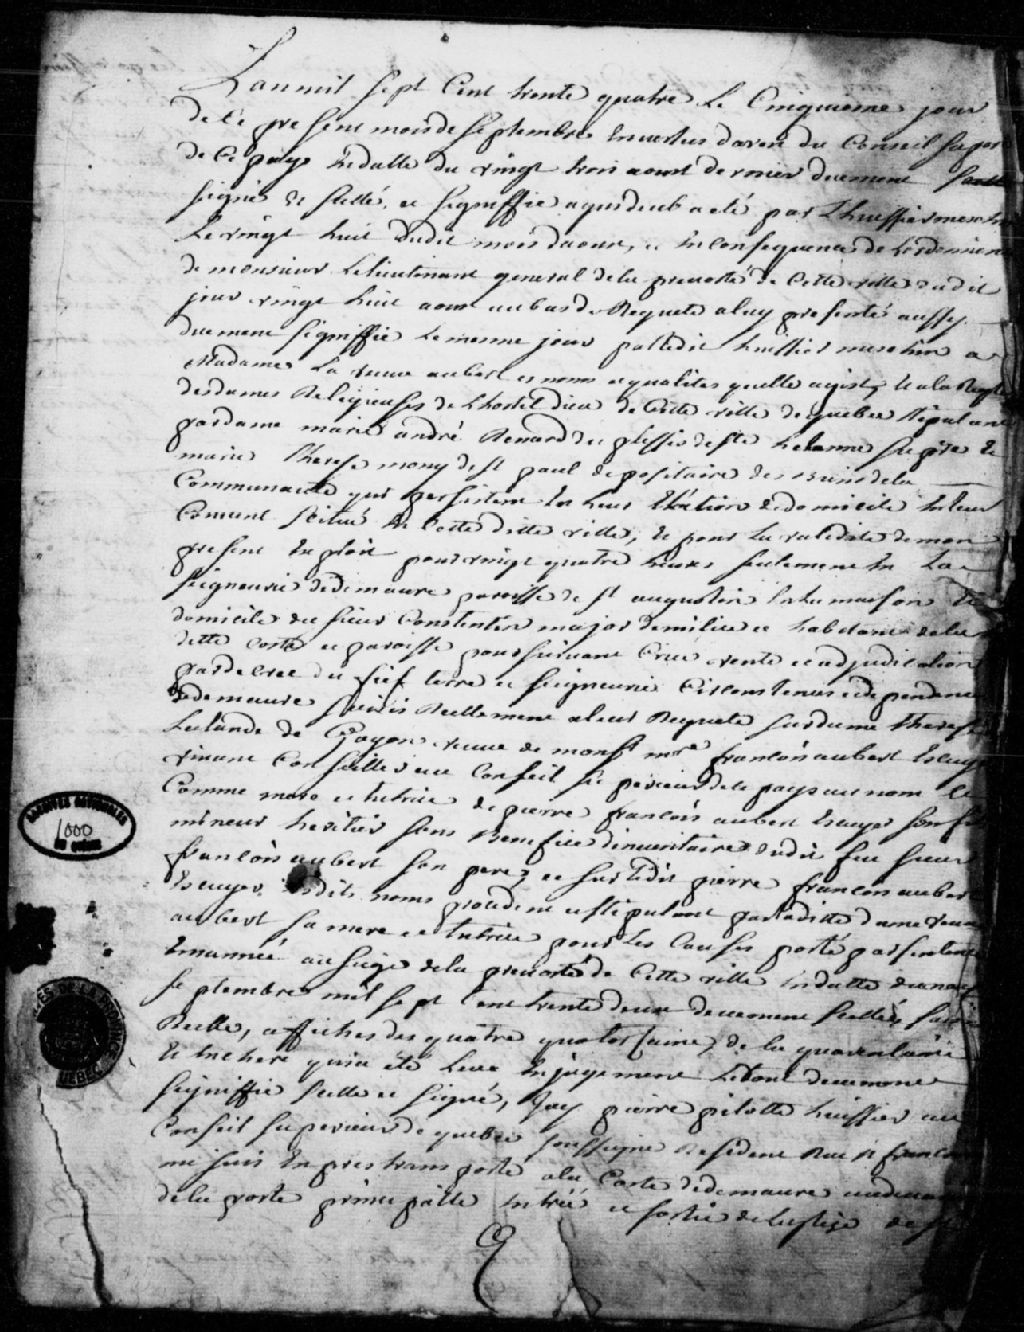 Lan mil sept Cent trente quatre Le Cinquieme jour
de Ce present mois de septembre En vertu d'arest du Conseil super
de Ce pays En datte du vingt trois aoust dernier duement
signé et scellé, et signiffie a qui deub a eté par L'huissier
Le vingt huit dudit mois daoust, et En Consequence de Lordonnance
de monsieur Le lieutenant general de la prevosté de Cette ville dudit
jour vingt huit aoust au bas de Requete a luy presentés aussy
duement signiffie Le mesme jour par ledit huissier a
Madame La veuve aubert es noms et qualites quelle agist, Et a la Requete
des dames Religieuses de Lhostel dieu de Cette ville de quebec stipulant
par dame marie andré Renard du plessis de ste helenne superieure Et
marie Therese mony de st paul depositaire des biens de la
Communauté qui persistent En leur Election de domicile En leur
Couvent scitué En Cette ditte ville, Et pour La validité de mon
present Exploit pour vingt quatre heures seulement En La
seigneurie de demaure paroisse de st augustin En la maison Et
domicile du sieur Constentin major de milice et habitant de la
ditte Coste et paroisse poursuivant Criée vente et adjudication
par decret du fief terre et seigneurie Circonstences et dependence
de demaure saisis Reellement a leur Requete sur dame therese
Lalande de Gayon veuve de monsr mre françois aubert Escuyer
vivant Conseiller au Conseil superieur de Ce pays au nom et
Comme mere et tutrice de pierre françois aubert Escuyer son fils
mineur heritier sous Benefice dinventaire dudit feu sieur
françois aubert son pere, et sur ledit pierre françois aubert
Escuyer esdits noms procedent et stipulant par laditte dame veuve
aubert sa mere et tutrice pour Les Causes porté par sentence
Emannée au siege de la prevosté de Cette ville En datte du neuf
septembre mil sept Cent trente deux deuement scellée saisie
Reelle, affiches des quatre quatorsaine, de la quarentaine
Et Enchere qui a eté leue En jugement Le tout deuement
signiffie scelle et signé, Jay pierre pilotte huissier au
Conseil superieur de quebec soussigné Residant Rue st françois
me suis Expres transporté a la Coste de demaure audevant
de la porte principalle Entrée et sortie de Leglise de st
ARCHIVES NATIONALES
1000
DU QUÉBEC
QUÉBEC